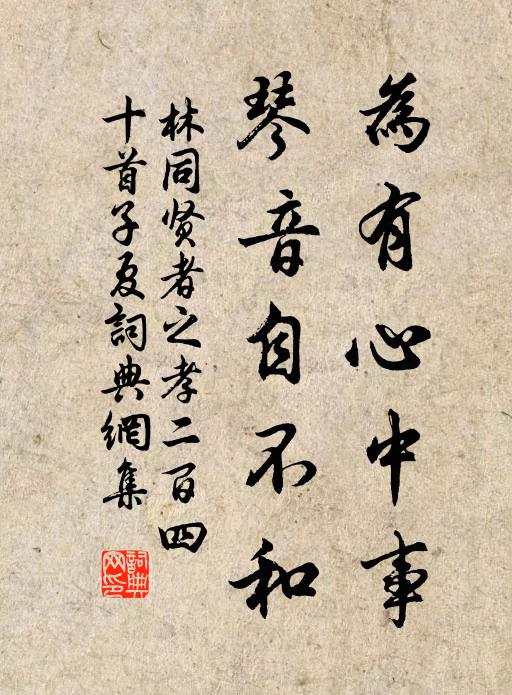 為有心中事
琴音自不和
林同贤者之孝二百四
十首子夏詞典網集
詞典
网印